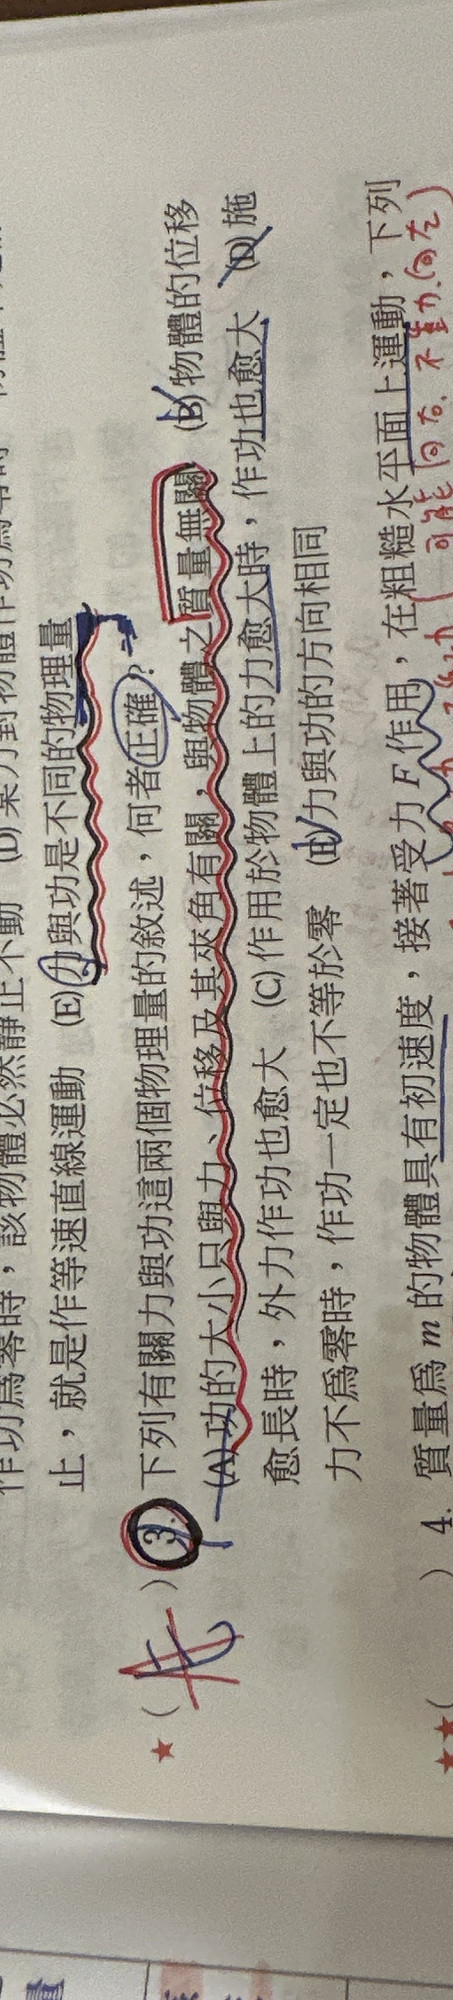 止，就是作等速直線運動 (E)力與功是不同的物理量
★( A ) 3. 下列有關力與功這兩個物理量的敘述，何者正確？
(A)功的大小只與力、位移及其夾角有關，與物體之質量無關 (B)物體的位移
愈長時，外力作功也愈大 (C)作用於物體上的力愈大時，作功也愈大 (D)施
力不為零時，作功一定也不等於零 (E)力與功的方向相同
可能向右、不動、向左)
★★( ) 4. 質量為 m 的物體具有初速度，接著受力 F 作用，在粗糙水平面上運動，下列